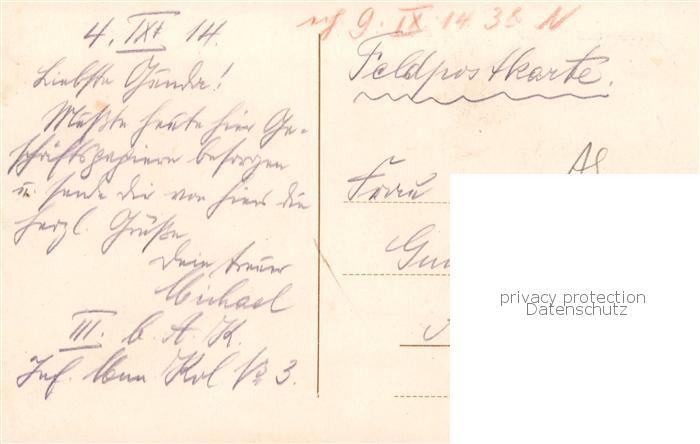 4. IX. 14.
Liebste Gunda!
Mußte heute hier Ge-
schäftspapiere besorgen
u. sende dir von hier die
herzl. Grüße
Dein treuer
Michael
III. b. A. K.
Inf. Mun Kol No 3.
9. IX 14 3 N
Feldpostkarte.
Frau
Gun
privacy protection
Datenschutz